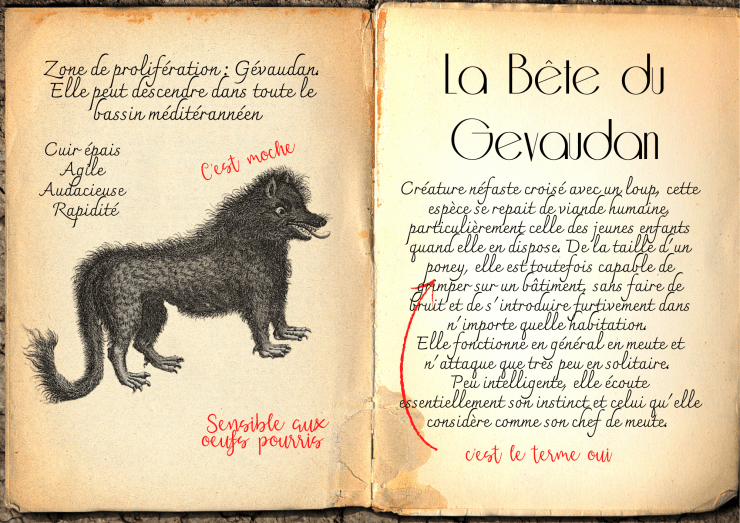 Zone de prolifération : Gévaudan.
Elle peut descendre dans toute le
bassin méditérannéen
Cuir épais
Agile
Audacieuse
Rapidité
C'est moche
Sensible aux
oeufs pourris
La Bête du
Gevaudan
Créature néfaste croisé avec un loup, cette
espèce se repait de viande humaine,
particulièrement celle des jeunes enfants
quand elle en dispose. De la taille d'un
poney, elle est toutefois capable de
grimper sur un bâtiment, sans faire de
bruit et de s'introduire furtivement dans
n'importe quelle habitation.
Elle fonctionne en général en meute et
n'attaque que très peu en solitaire.
Peu intelligente, elle écoute
essentiellement son instinct et celui qu'elle
considère comme son chef de meute.
c'est le terme oui